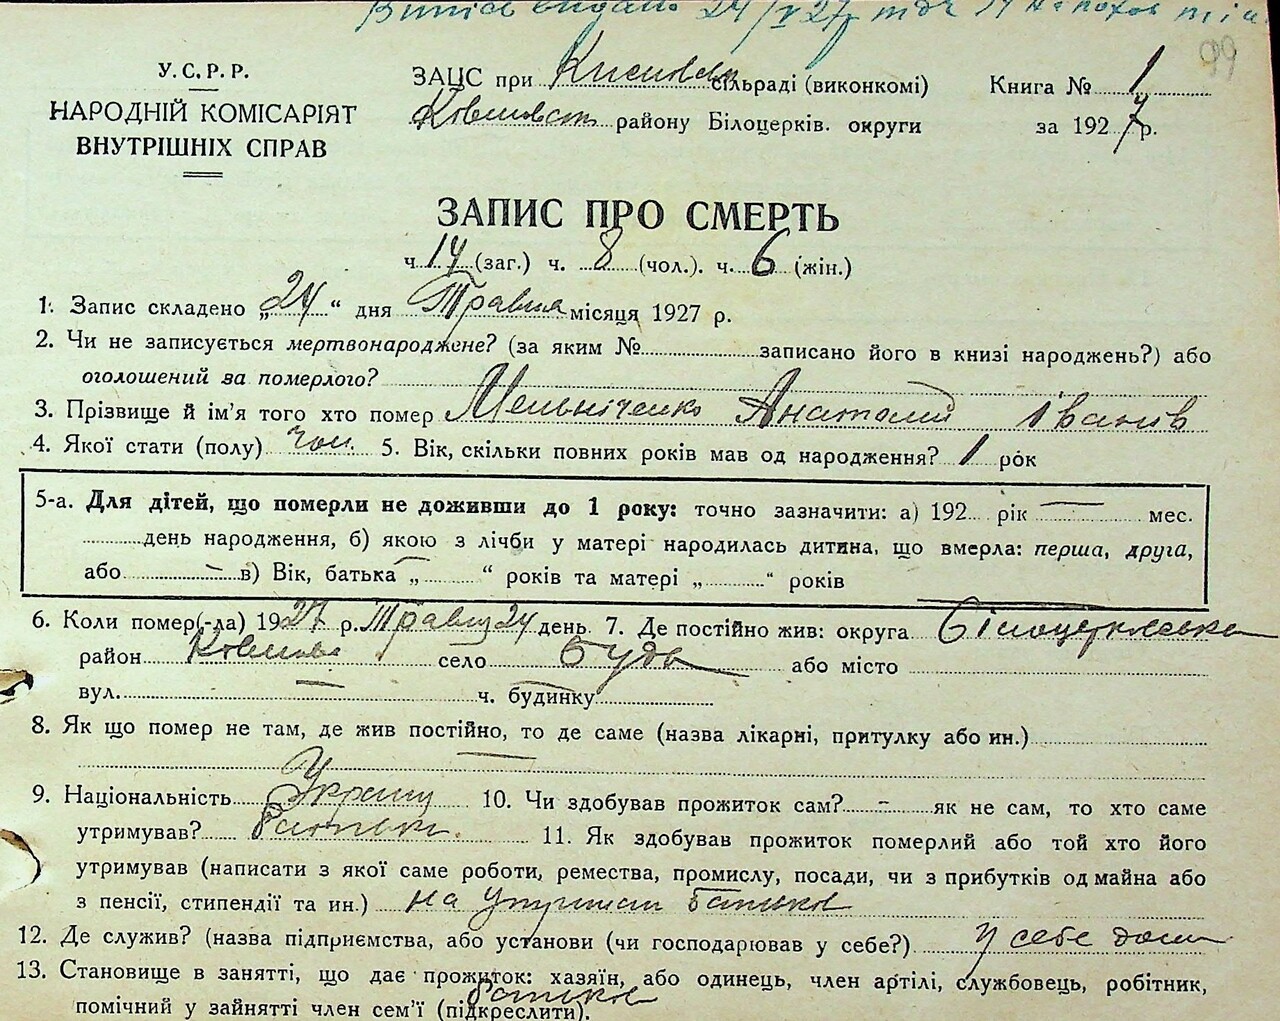 99
У.С.Р.Р.
НАРОДНІЙ КОМІСАРІЯТ
ВНУТРІШНІХ СПРАВ
ЗАЦС при сільраді (виконкомі)
району Білоцерків. округи
Книга № 1
за 1927 р.
ЗАПИС ПРО СМЕРТЬ
ч 14 (заг.) ч. 8 (чол.). ч. 6 (жін.)
1. Запис складено „24“ дня Травня місяця 1927 р.
2. Чи не записується мертвонароджене? (за яким № записано його в книзі народжень?) або
оголошений за померлого?
3. Прізвище й ім'я того хто помер Мельніченко Анатолій Іванів
4. Якої стати (полу) чол. 5. Вік, скільки повних років мав од народження? 1 рок
5-а. Для дітей, що померли не доживши до 1 року: точно зазначити: а) 192 рік — мес.
день народження, б) якою з лічби у матері народилась дитина, що вмерла: перша, друга,
або — в) Вік, батька „ — “ років та матері „ “ років
6. Коли помер(-ла) 1927 р. Травня 24 день. 7. Де постійно жив: округа Білоцерківська
район село Буда або місто
вул. — ч. будинку
8. Як що помер не там, де жив постійно, то де саме (назва лікарні, притулку або ин.)
—
9. Національність 10. Чи здобував прожиток сам? - як не сам, то хто саме
утримував? батьки. 11. Як здобував прожиток померлий або той хто його
утримував (написати з якої саме роботи, ремества, промислу, посади, чи з прибутків од майна або
з пенсії, стипендії та ин.) на батьков
12. Де служив? (назва підприємства, або установи (чи господарював у себе?) у себе дома
13. Становище в занятті, що дає прожиток: хазяїн, або одинець, член артілі, службовець, робітник,
батьков
помічний у зайнятті член сем'ї (підкреслити).